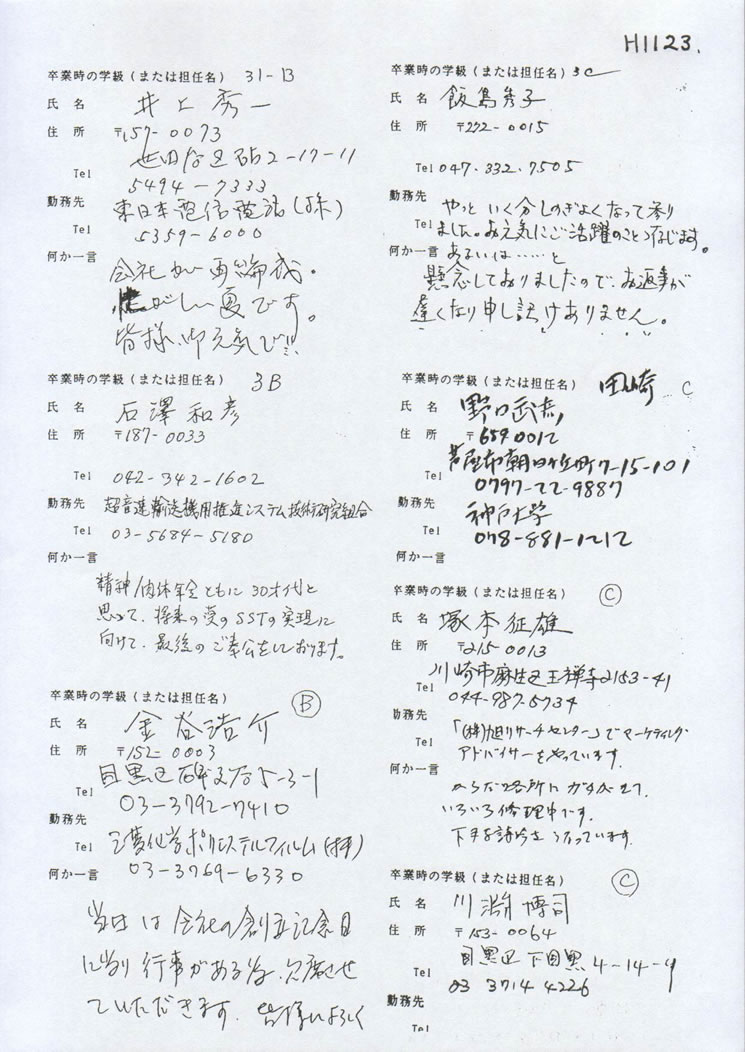 H1123.
卒業時の学級(または担任名) 31-B
氏 名 井上秀一
住 所 〒157-0073
世田谷区砧2-17-11
Tel 5494-7333
勤務先 東日本電信電話(株)
Tel 5359-6000
何か一言
会社が再編成。
忙がしい夏です。
皆様、御元気で!!
卒業時の学級(または担任名) 3B
氏 名 石澤和彦
住 所 〒187-0033
Tel 042-342-1602
勤務先 超音速輸送機用推進システム技術研究組合
Tel 03-5684-5180
何か一言
精神/肉体年令ともに30才代と
思って、将来の夢のSSTの実現に
向けて、最後のご奉公をしております。
卒業時の学級(または担任名) B
氏 名 金谷浩介
住 所 〒152-0003
目黒区碑文谷5-3-1
Tel 03-3792-7410
勤務先
Tel 三菱化学ポリエステルフィルム(株)
何か一言 03-3769-6330
当日は会社の創立記念日
に当り行事がある為、欠席させ
ていただきます。皆様によろしく
卒業時の学級(または担任名) 3C
氏 名 飯島秀子
住 所 〒272-0015
Tel 047-332-7505
勤務先
Tel やっといく分しのぎよくなって参り
ました。お元気にご活躍のことと存じます。
何か一言 あるいは……と
懸念しておりましたので、お返事が
遅くなり申し訳けありません。
卒業時の学級(または担任名) 田崎 C
氏 名 野口武彦
住 所 〒659 0012
芦屋市朝日ヶ丘町7-15-101
Tel 0797-22-9887
勤務先 神戸大学
Tel 078-881-1212
何か一言
卒業時の学級(または担任名) C
氏 名 塚本征雄
住 所 〒215 0013
川崎市麻生区王禅寺2153-41
Tel 044-987-5734
勤務先
Tel 「(株)旭リサーチセンター」でマーケティング・
アドバイザーをやっています。
何か一言
からだの各所にガタがきて、
いろいろ修理中です。
下手な詩吟をうなっています。
卒業時の学級(または担任名) C
氏 名 川渕博司
住 所 〒153-0064
目黒区下目黒4-14-9
Tel 03 3714 4226
勤務先
Tel